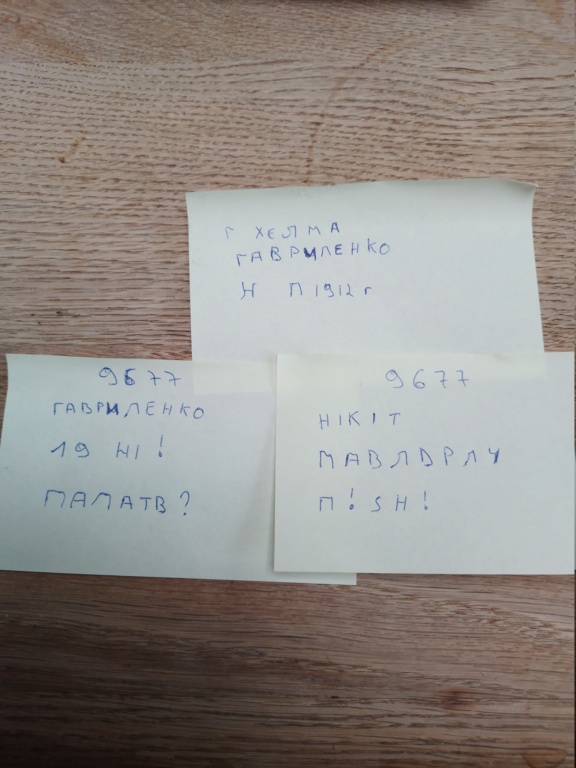 Г ХЕЛМА
ГАВРИЛЕНКО
Н П 1912 г
9677
ГАВРИЛЕНКО
19 НІ!
ПАМАТВ?
9677
НІКІТ
МАВЛВРЛУ
П! SН!